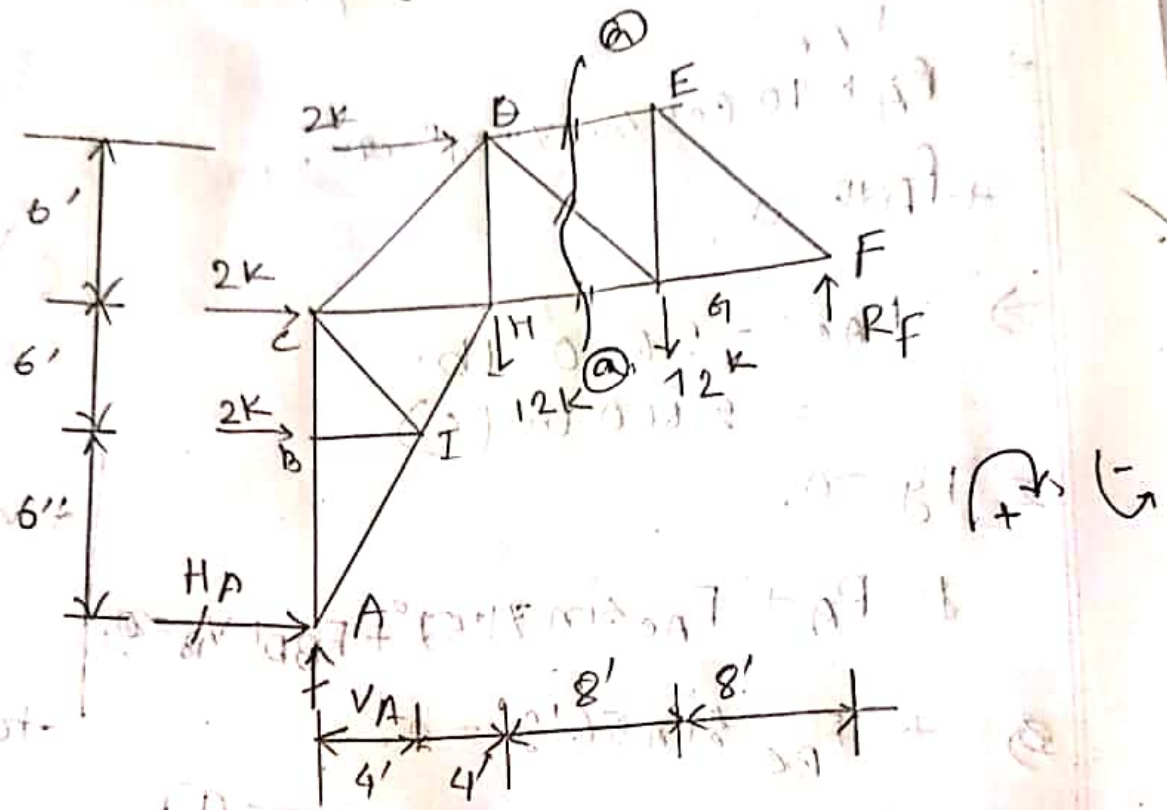 a
2K
D
E
6'
2K
C
H
G
F
12K
a
12K
RF
6'
2K
B
I
6''
HA
A
+
-
VA
8'
8'
4'
4'